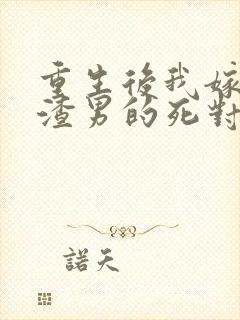 重生後我嫁
渣男的死對
諾天